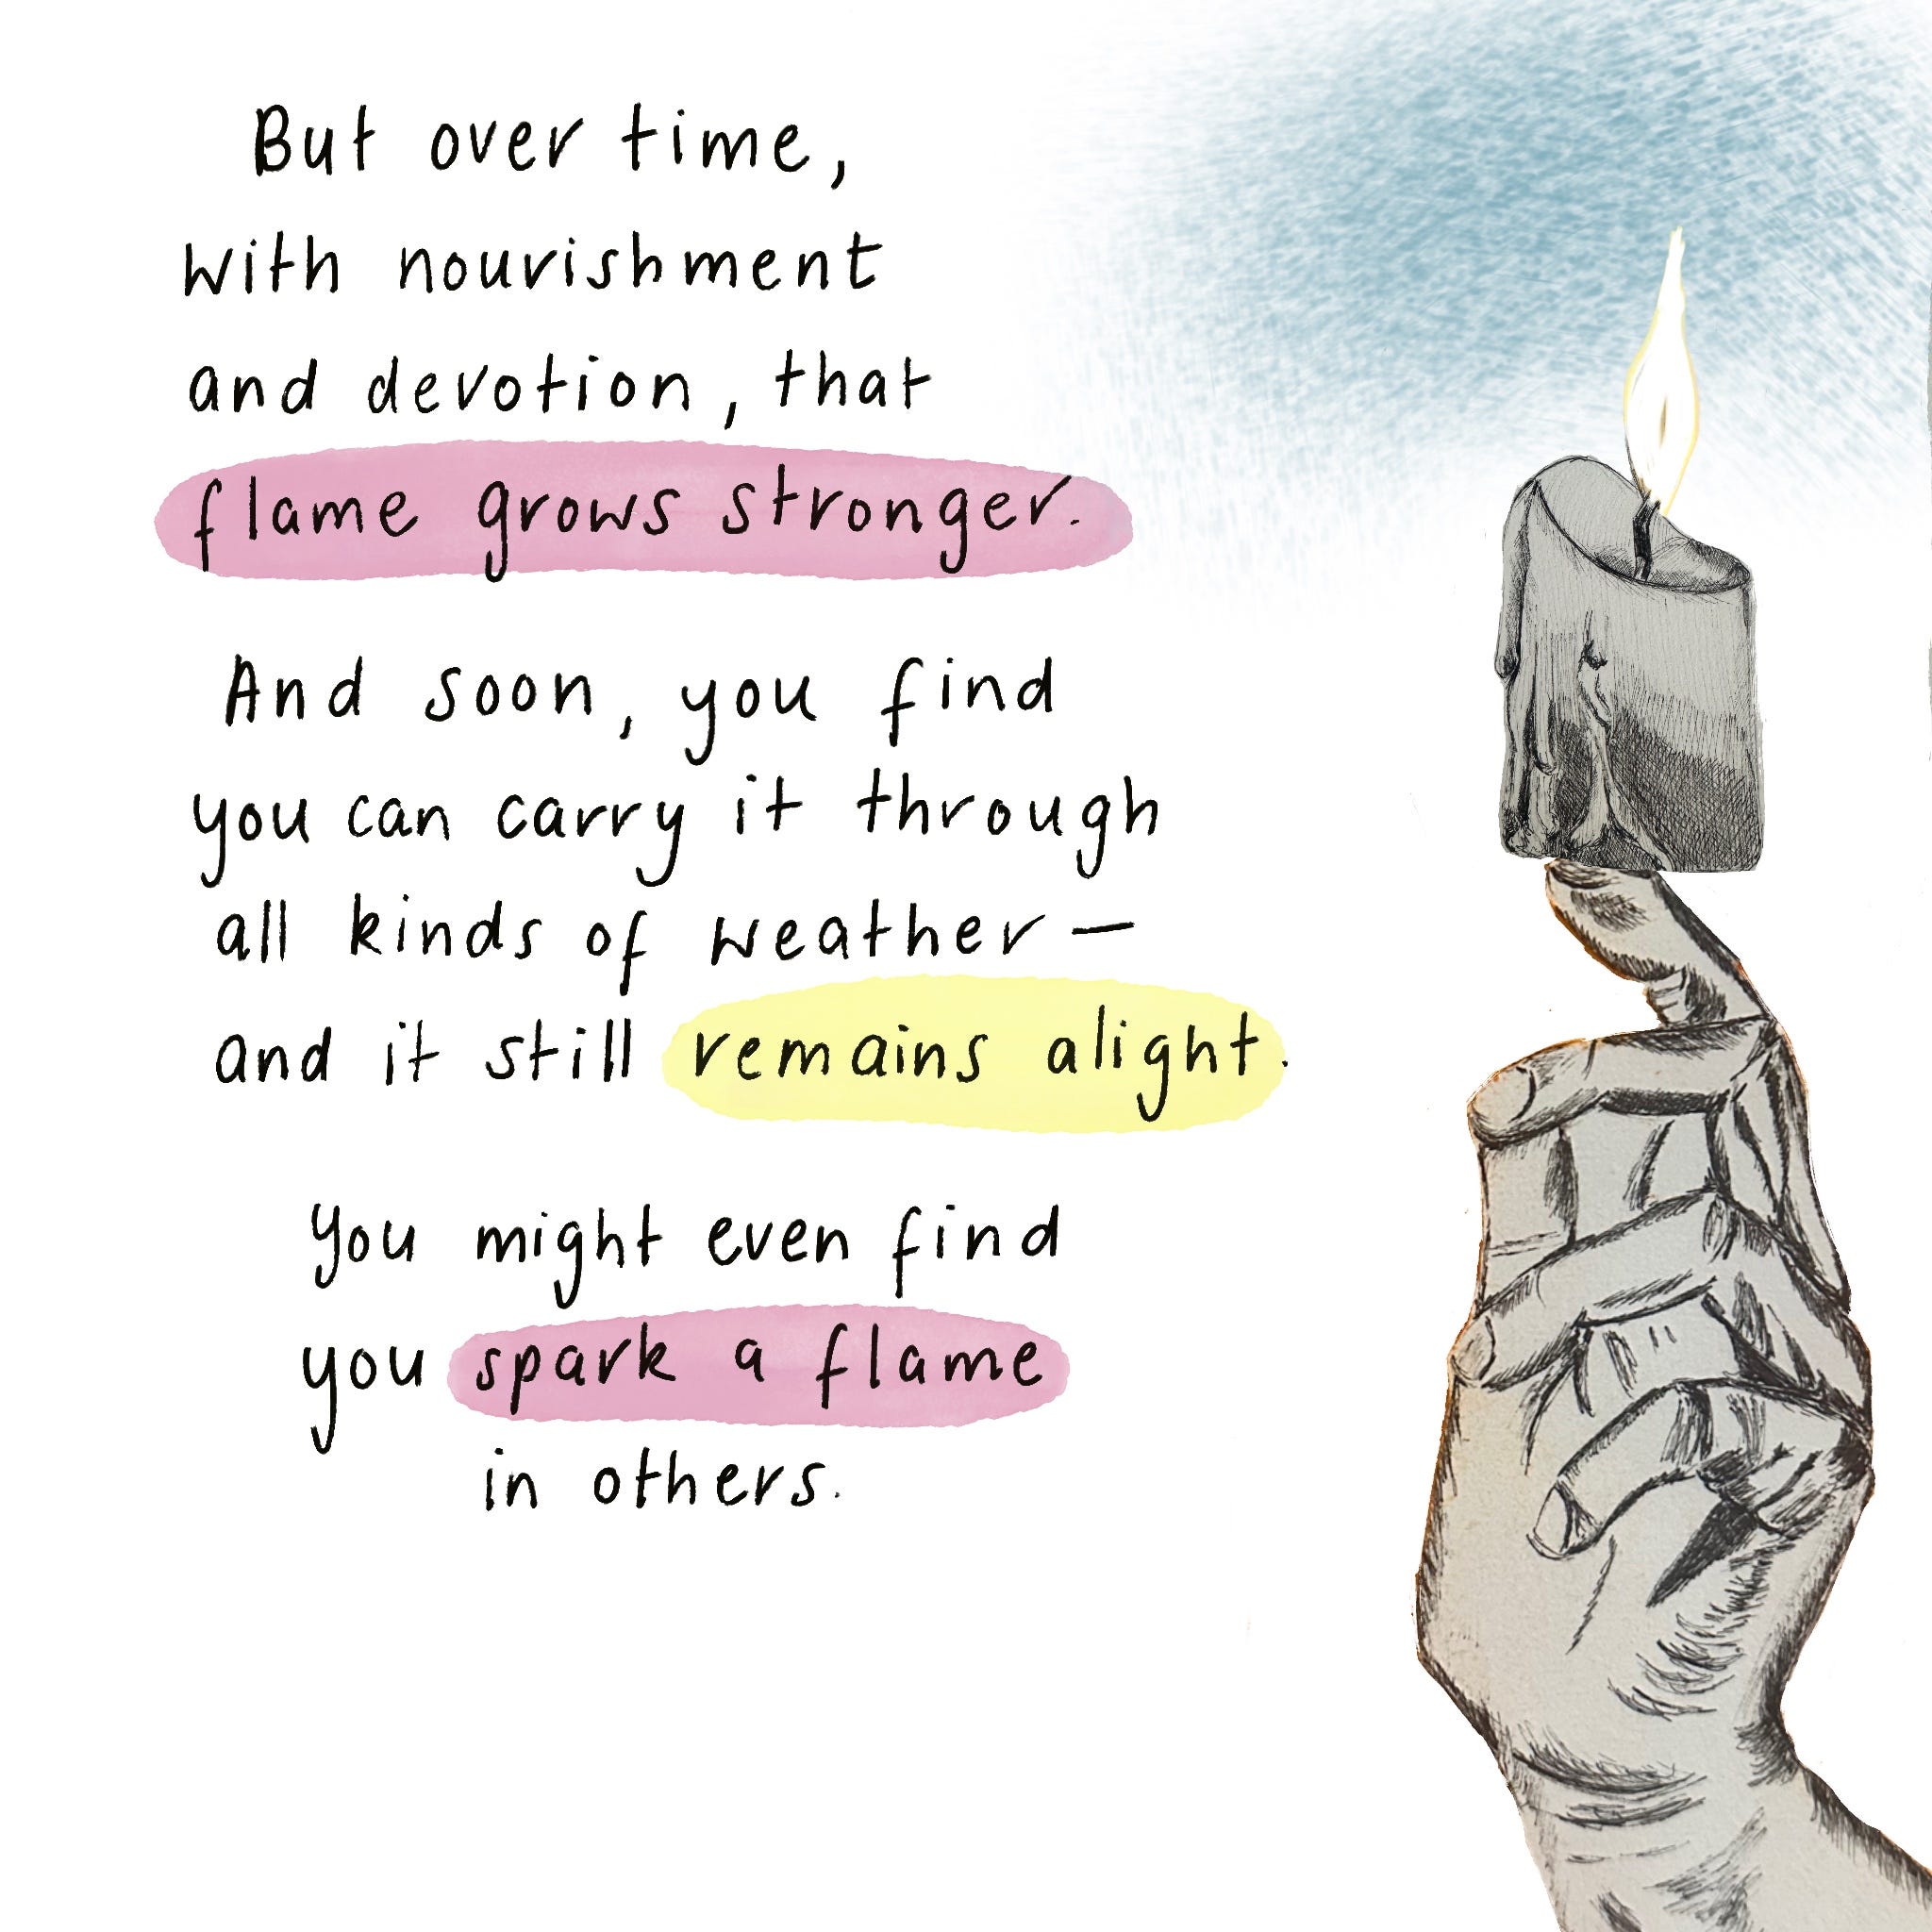 But over time,
with nourishment
and devotion, that
flame grows stronger.
And soon, you find
you can carry it through
all kinds of weather —
and it still remains alight.
You might even find
you spark a flame
in others.